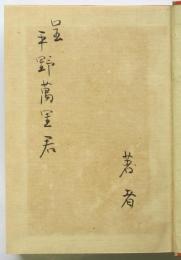 呈
平野萬里君
著者